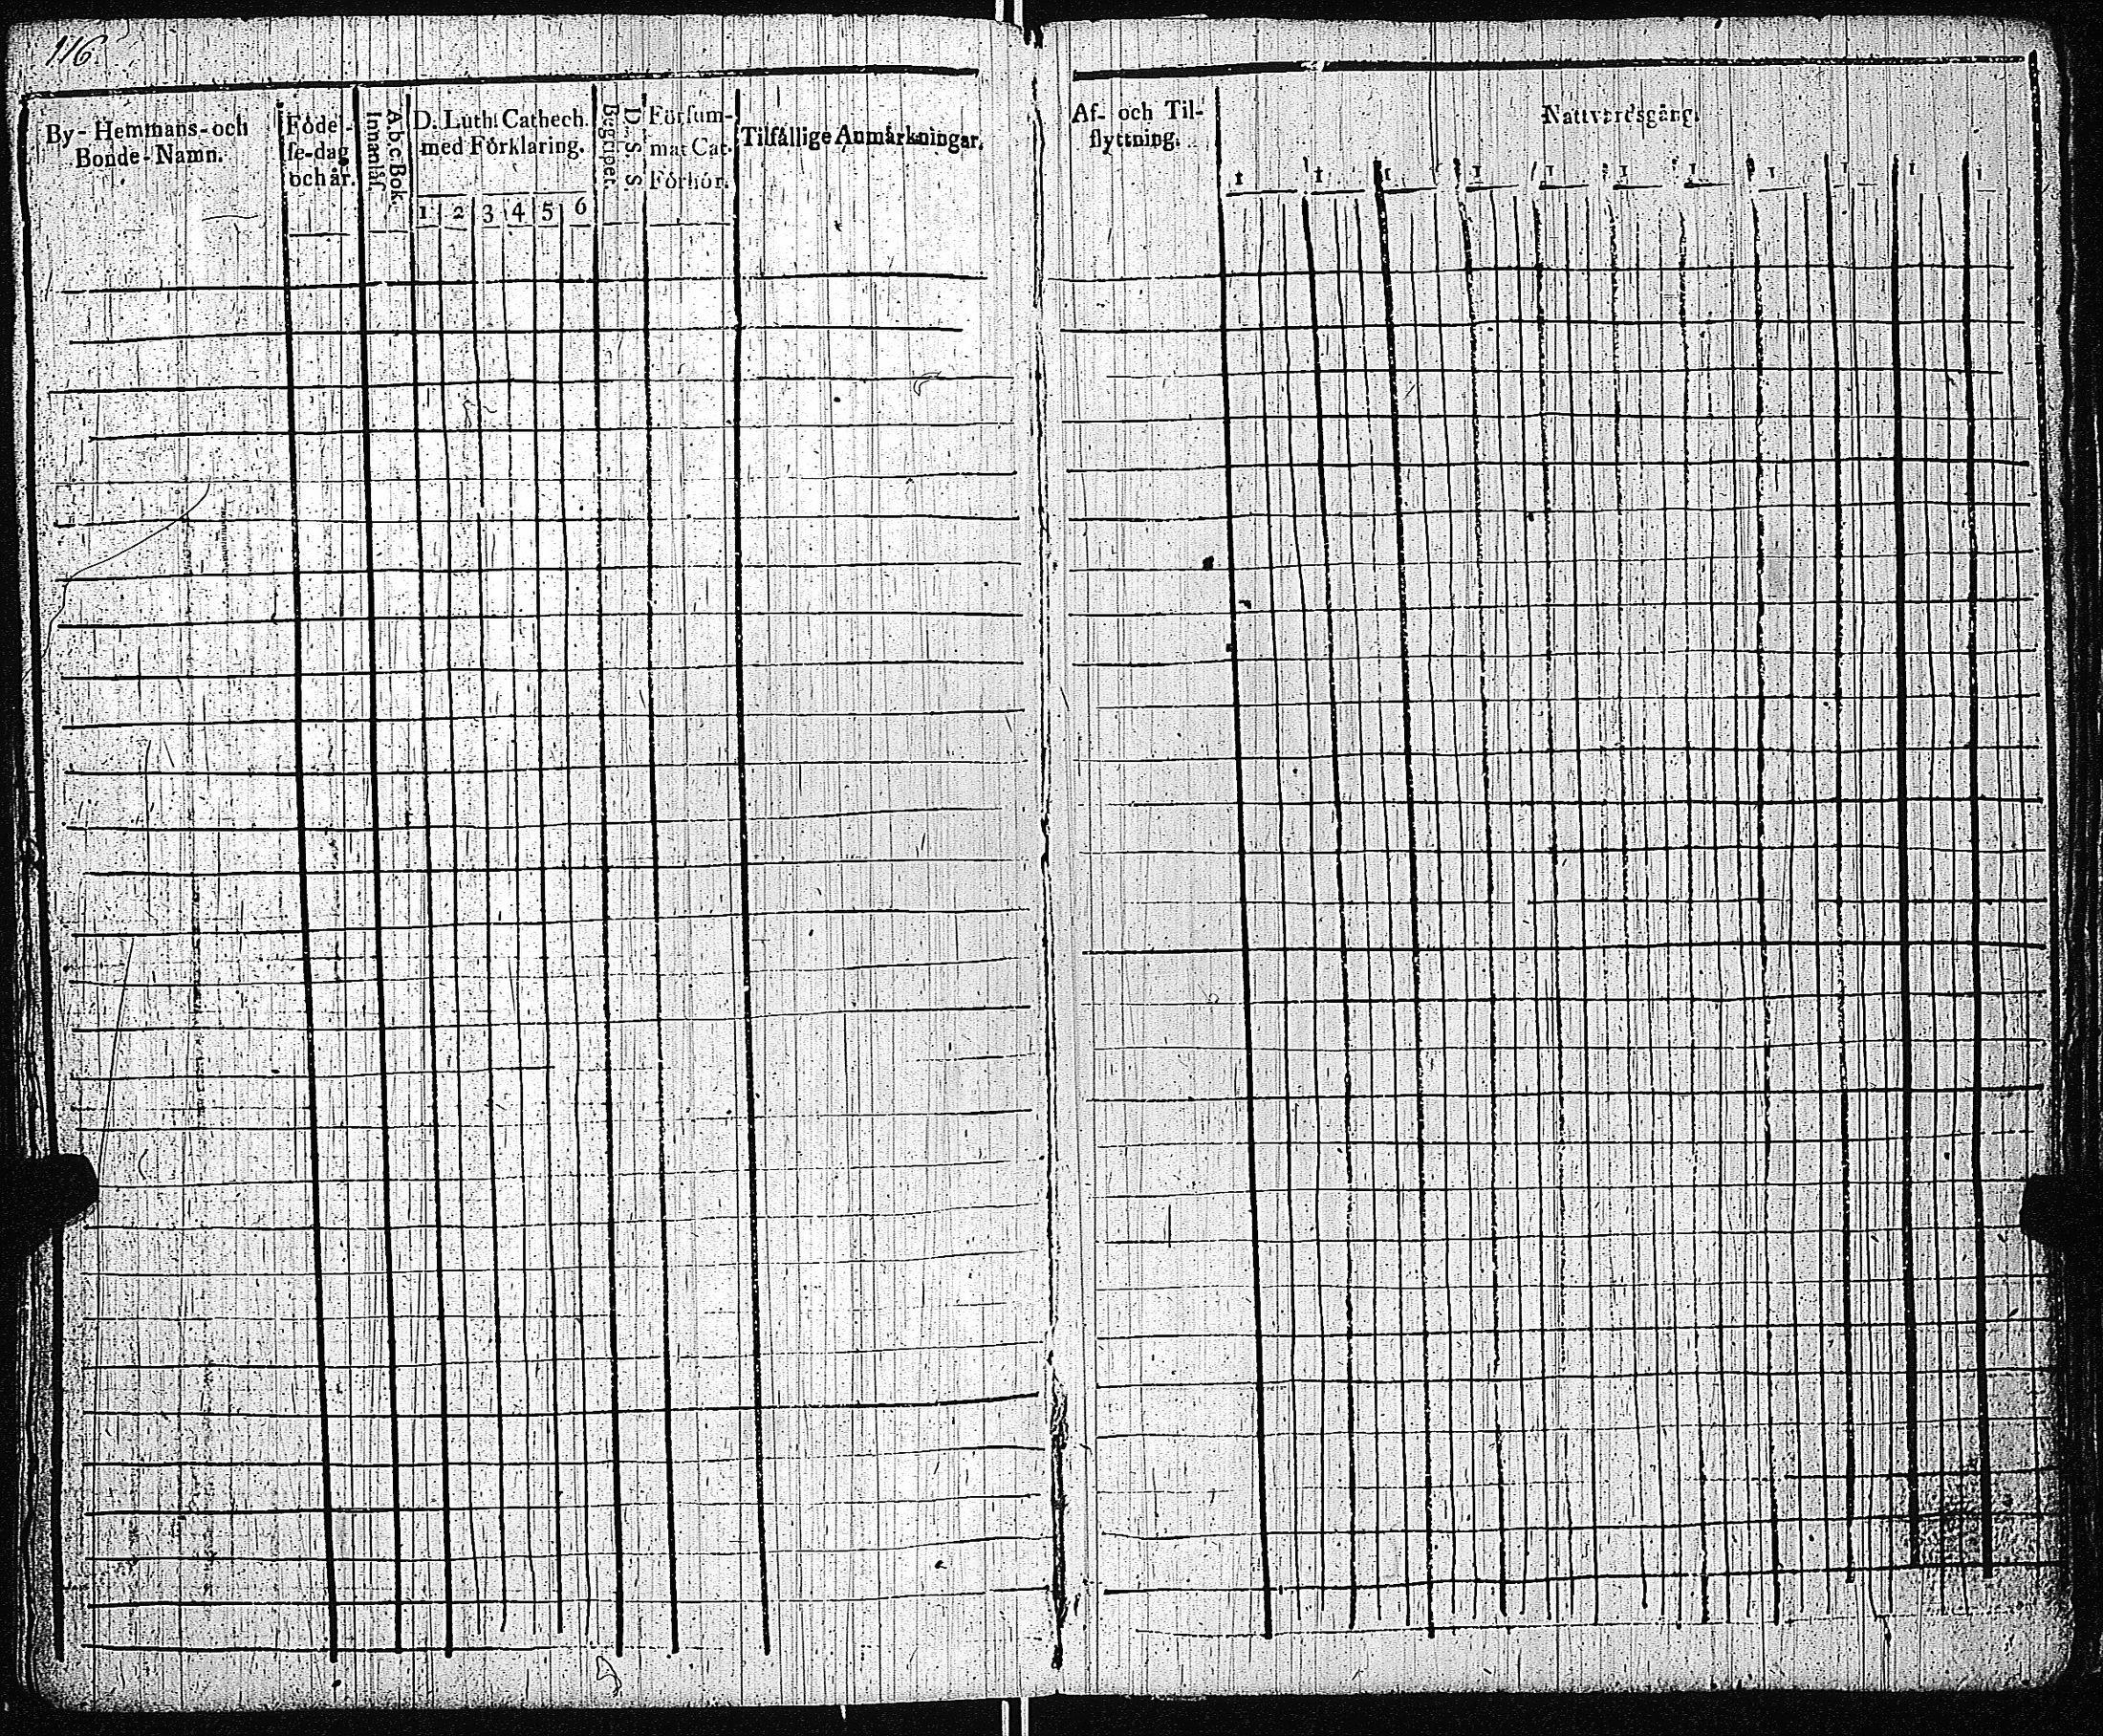 116.
By- Hemmans- och
Bonde-Namn.
Födel-
se-dag
och år.
A.b.c.Bok.
Innanläs.
D. Luth. Cathech.
med Förklaring.
1 2 3 4 5 6
D. S. S.
Begrepet.
Försum-
mat Cat.
Förhör.
Tilfällige Anmärkningar.
Af- och Til-
flyttning.
Nattvardsgång.
1 1 1 1 1 1 1 1 1 1 1